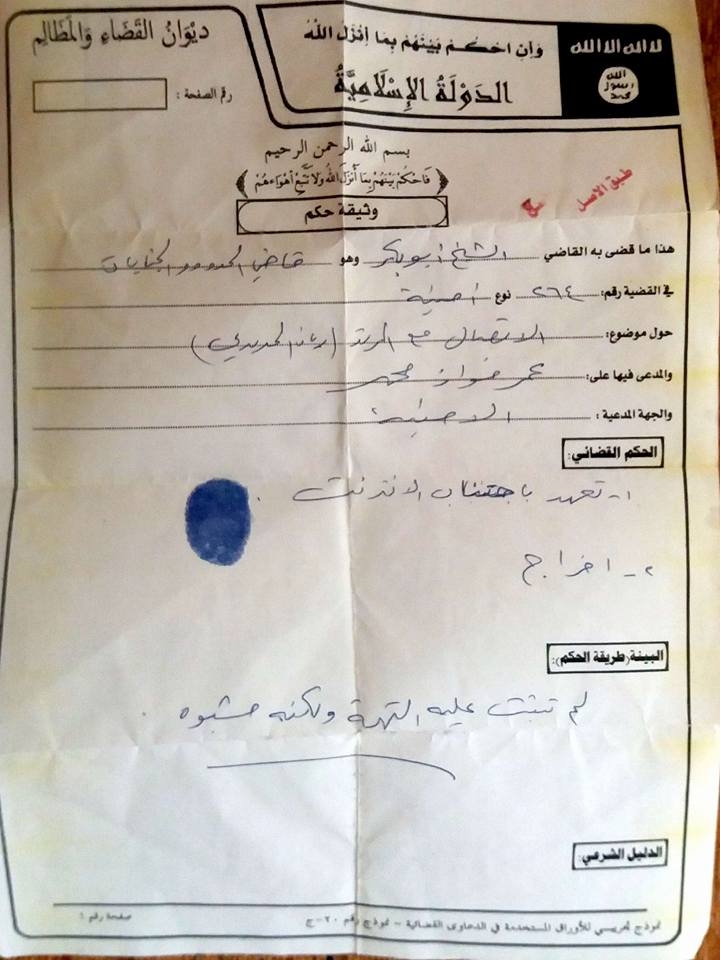 ديوان القضاء والمظالم
وان احكم بينهم بما انزل الله
الدولة الإسلامية
لا اله الا الله
الله
رسول
محمد
رقم الصفحة :
بسم الله الرحمن الرحيم
﴿فَاحْكُم بَيْنَهُم بِمَا أَنزَلَ اللهُ وَلَا تَتَّبِعْ أَهْوَاءهُمْ﴾
طبق الاصل
وثيقة حكم
هذا ما قضى به القاضي الشيخ ابو بكر وهو قاضي الحدود والجنايات
في القضية رقم: ٢٦٤ نوع امنية
حول موضوع: الاتصال مع المرتد
والمدعى فيها على: عمر فواز محمد
والجهة المدعية : الامنية
الحكم القضائي:
١- تعهد باجتناب الانترنت .
٢- اخراج
البينة (طريقة الحكم):
لم تثبت عليه التهمة ولكنه مشبوه .
الدليل الشرعي:
نموذج تجريبي للأوراق المستخدمة في الدعاوى القضائية - نموذج رقم ٢٠-ج
صفحة رقم ١